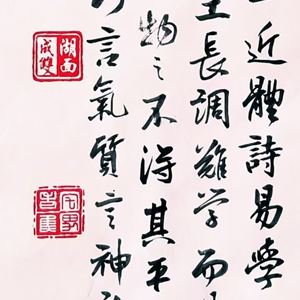 近體詩易學
工長調難學而
物之不得其平
言氣質言神
成雙